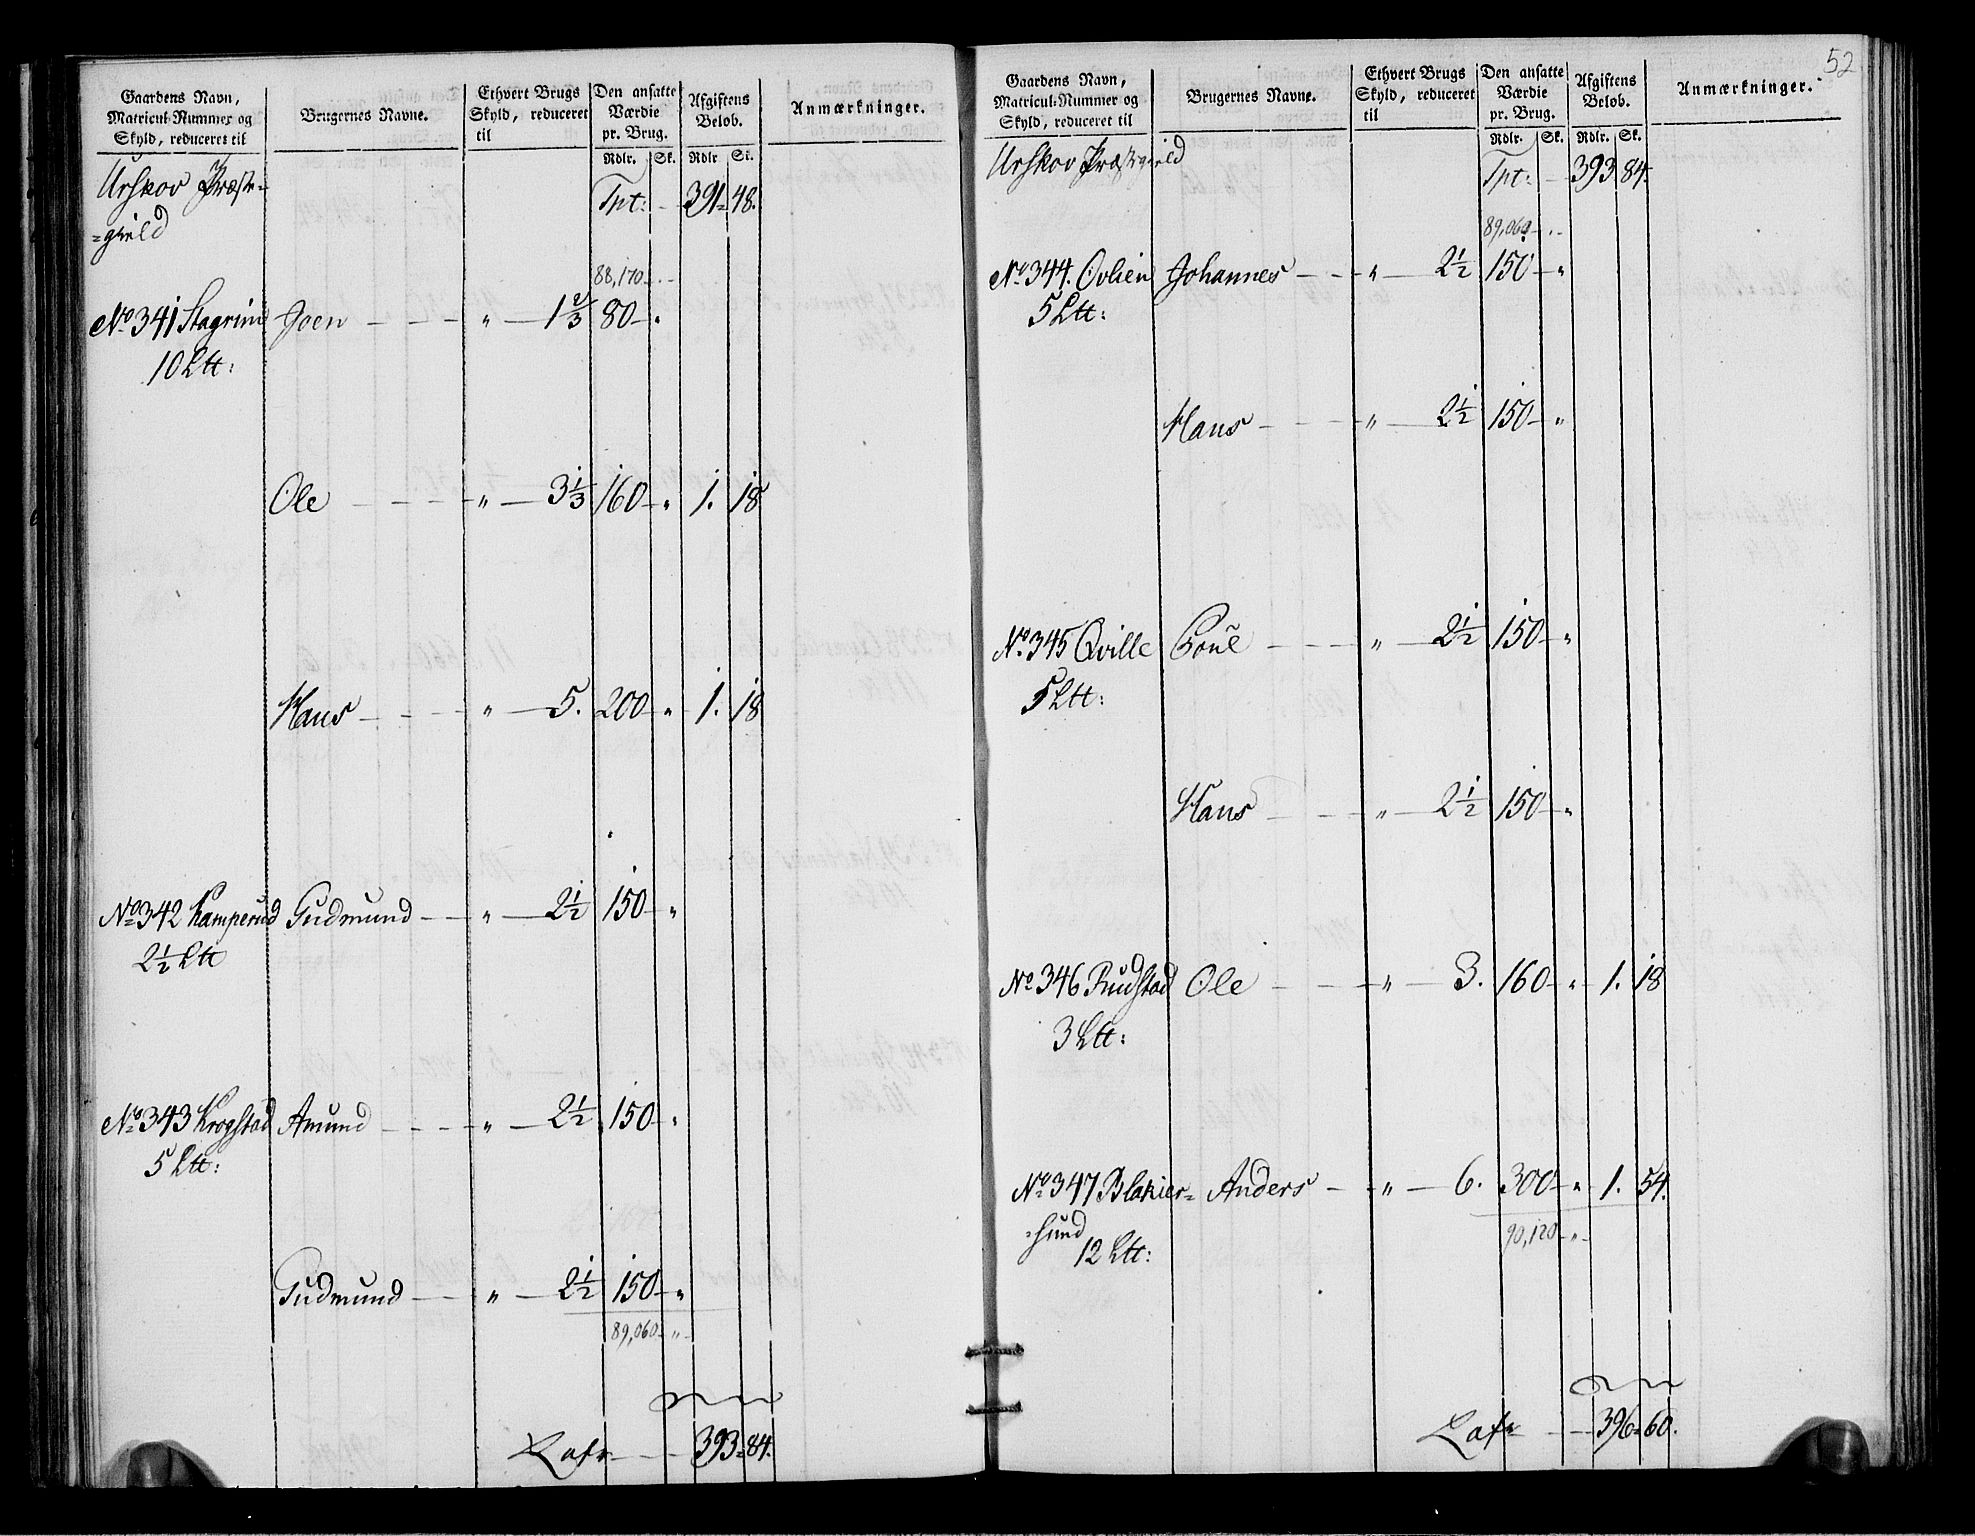 Gaardens Navn, Matricul-Nummer og Skyld, reduceret til | Brugernes Navne. | Ethvert Brugs Skyld, reduceret til | Den ansatte Værdie pr. Brug. | Afgiftens Beløb. | Anmærkninger.
Rdlr. Sk. Rdlr Sk.
Urskov Præste-
=gield
Tpt: 391=48.
88,170
No 341 Stagrim Joen „ 1 2/3 80 „
10 Ltt:
Ole „ 3 1/3 160 „ 1. 18
Hans „ 5. 200 „ 1. 18
No 342 Kamperud Gudmund „ 2 1/2 150 „
2 1/2 Ltt
No 343 Krogstad Amund „ 2 1/2 150 „
5 Ltt:
Gudmund „ 2 1/2 150 „
89,060 „
Lats 393=84.
52
Gaardens Navn, Matricul-Nummer og Skyld, reduceret til | Brugernes Navne. | Ethvert Brugs Skyld, reduceret til | Den ansatte Værdie pr. Brug. | Afgiftens Beløb. | Anmærkninger.
Rdlr. Sk. Rdlr. Sk.
Urskov Præstegield
Tpt: 393 84.
89,060
No 344. Ovlien Johannes „ 2 1/2 150 „
5 Ltt:
Hans „ 2 1/2 150 „
No 345 Qville Poul „ 2 1/2 150 „
5 Ltt:
Hans „ 2 1/2 150 „
No 346 Rudstad Ole „ 3. 160 „ 1. 18
3 Ltt:
No 347 Blakier= Anders „ 6. 300 „ 1. 54.
=sund
90,120 „
12 Ltt:
Lats 396=60.